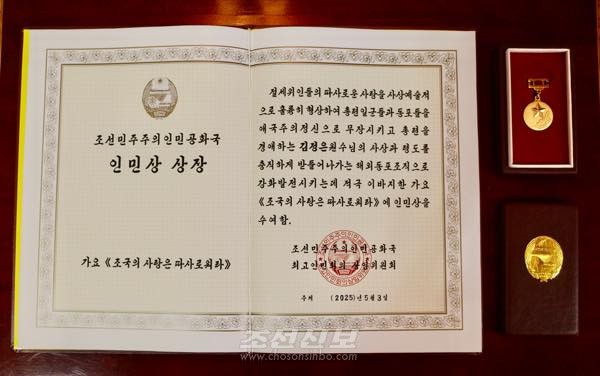 조선민주주의인민공화국
인민상 상장
가요 《조국의 사랑은 따사로워라》
절세위인들의 따사로운 사랑을 사상예술적
으로 훌륭히 형상하여 총련일군들과 동포들을
애국주의정신으로 무장시키고 총련을
경애하는 김정은원수님의 사상과 령도를
충직하게 받들어나가는 해외동포조직으로
강화발전시키는데 적극 이바지한 가요
《조국의 사랑은 따사로워라》에 인민상을
수여함.
조선민주주의인민공화국
최고인민회의 상임위원회
주체 (2025)년 5월 3일
조선신보
www.chosonsinbo.com